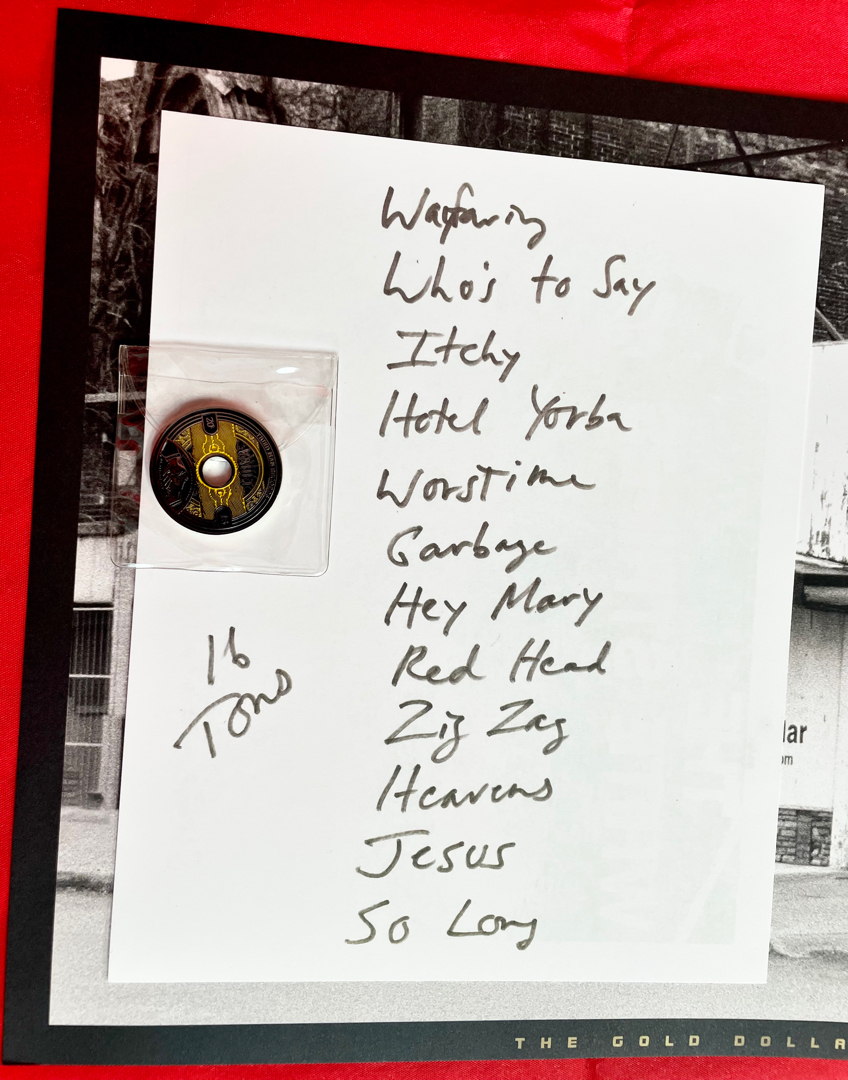 Wayfaring
Who's to Say
Itchy
Hotel Yorba
Worstime
Garbage
Hey Mary
Red Head
Zig Zag
Heavens
Jesus
So Long
16
Tons
lar
om
THE GOLD DOLLA